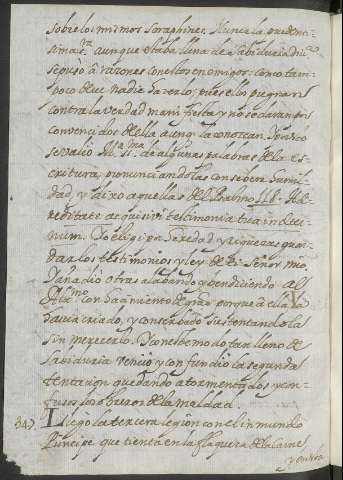 sobre los mismos seraphines. Nunca la pruden-
aunque estaba llena de sabiduria
se puso â razones con estos enemigos; como tam-
poco deve nadie hacerlo, pues ellos pugnan
contra la verdad manifiesta y no se daran por
convencidos della aunq̃ la conozcan. Pero
se valio M.ª SS. de algunas palabras de la Es-
critura, pronunciandolas con severa humil-
dad, y dixo aquellas del Psalmo 118. Hæ-
reditate acquisivi testimonia tua in æter-
num. Yo elegi por heredad y riquezas guar-
dar los testimonios y ley de ti Señor mio.
Y añadio otras alabando y bendiciendo al
Alt.mo con hacimiento de gras porque â ella la
havia criado, y conservado sustentandola
sin merecerlo. Y con este modo tan lleno de
sabiduria venció y confundio la segunda
tentacion quedando atormentados y con-
fusos los obreros de la maldad.
347. Llego la tercera legion con el inmundo
Principe que tienta en la flaqueza de la carne
y en esta